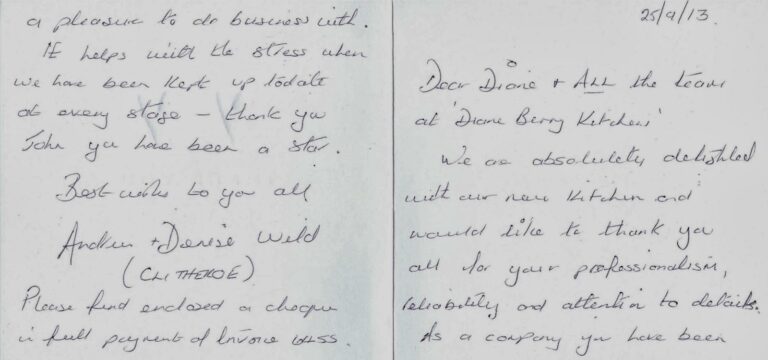 25/9/13.
Dear Diane + ALL the team
at 'Diane Berry Kitchens'
We are absolutely delighted
with our new kitchen and
would like to thank you
all for your professionalism,
reliability and attention to details.
As a company you have been
a pleasure to do business with.
It helps with the stress when
we have been kept up todate
at every stage – thank you
John you have been a star.
Best wishes to you all
Andrew + Denise Wild
(CLITHEROE)
Please find enclosed a cheque
in full payment of Invoice